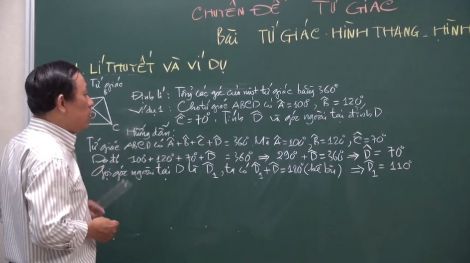 CHUYÊN ĐỀ TỨ GIÁC
Bài TỨ GIÁC. HÌNH THANG. HÌNH
LÍ THUYẾT VÀ VÍ DỤ
Tứ giác
Định lí: Tổng các góc của một tứ giác bằng 360°
Ví dụ 1: Cho tứ giác ABCD có Â = 100°, B̂ = 120°,
Ĉ = 70°. Tính D̂ và góc ngoài tại đỉnh D
C
Hướng dẫn:
Tứ giác ABCD có Â + B̂ + Ĉ + D̂ = 360° Mà Â = 100°, B̂ = 120°, Ĉ = 70°
Do đó 100° + 120° + 70° + D̂ = 360° ⇒ 290° + D̂ = 360° ⇒ D̂ = 70°
Gọi góc ngoài tại D là D̂₁, ta có D̂₁ + D̂ = 180° (kề bù) ⇒ D̂₁ = 110°